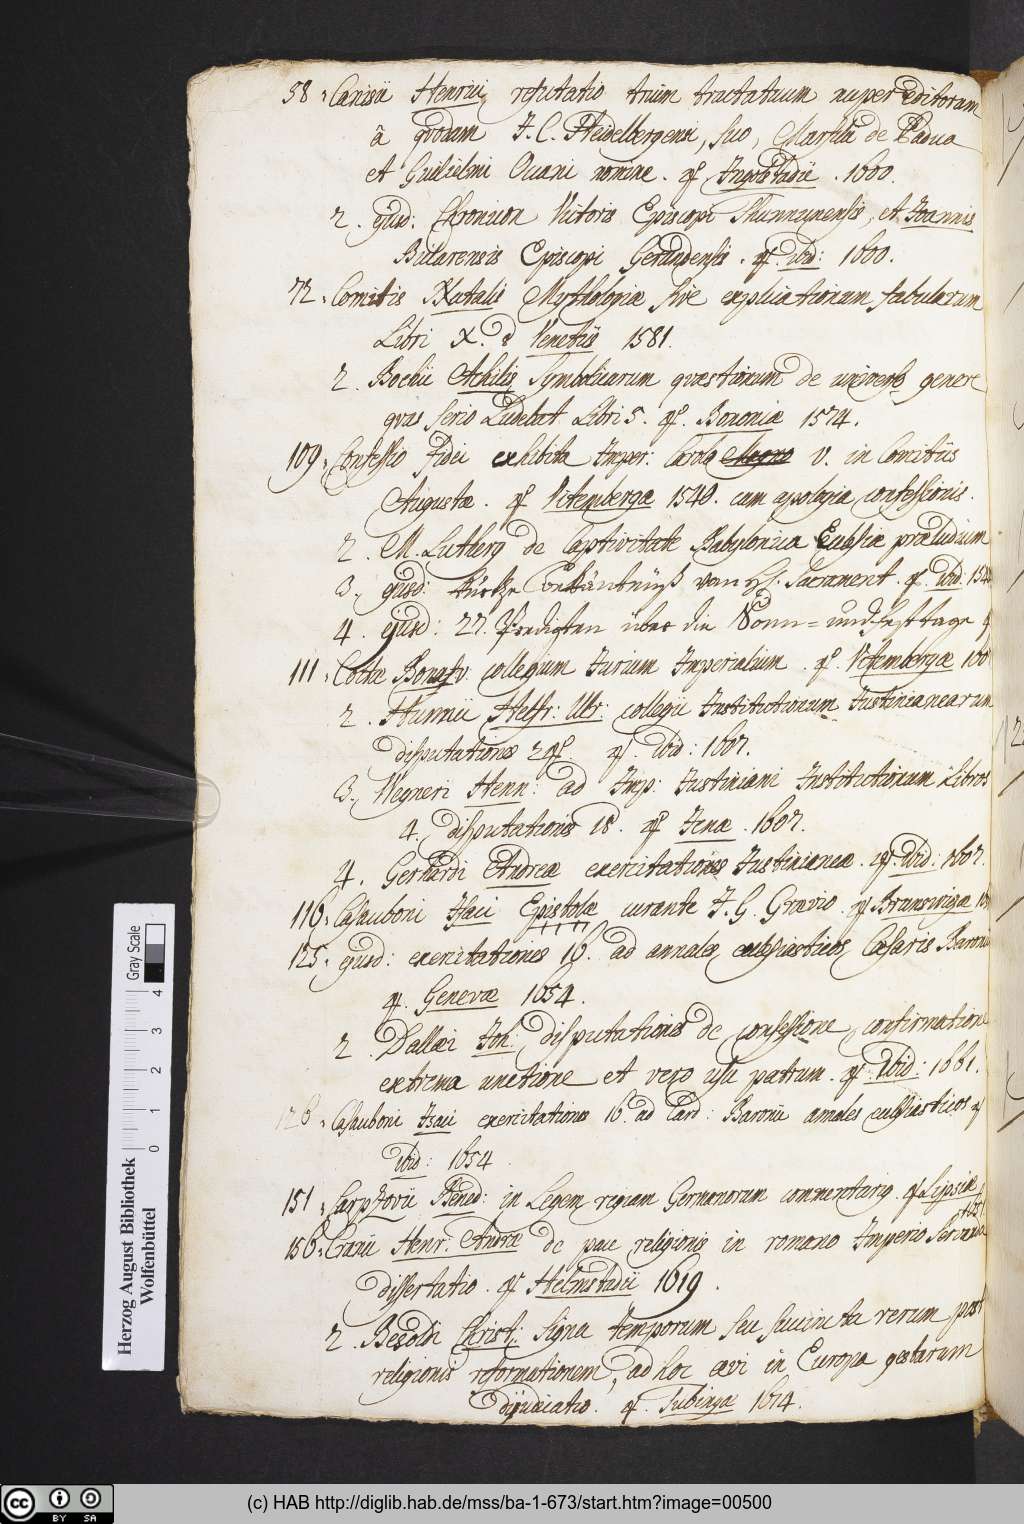 58. Canisii Henrici refutatio trium tractatuum nuper Editorum
â quodam J. C. Heidelbergensi, suo, Marsilii de Padua
et Guilielmi Occani nomine. 4° Ingolstadii. 1600.
2. ejusd: Chronicon Victoris Episcopi Thunnunensis, et Joannis
Biclarensis Episcopi Gerundensis. 4° ibid: 1600.
72. Comitis Natalis Mythologiæ sive explicationum fabularum
Libri X. Venetiis 1581.
2. Bochii Achilis Symbolicarum quæstionum de universo genere
quas serio Ludebat Libri 5. 4° Bononiæ 1574.
109. Confessio Fidei exhibita Imper: Carolo Magno V. in Comitiis
Augustæ. 4° Vitembergæ 1540. cum apologia confessionis.
2. M. Lutherg de Captivitate Babylonica Ecclesiæ præludium
3. ejusd: Kurtze Bekäntnüß von H. Sacrament. 4° ibid: 154
4. ejusd: 27. Predigten über die Sonn= und Festtage 4
111. Cothæ Bonav. collegium Jurium Imperialium. 4° Vitembergæ 160
2. Hunnii Helfr: Ulr: collegii Institutionum Justinianearum
disputationes 4° ibid: 1607.
3. Wegneri Henn: ad Imp: Justiniani Institutionum Libros
4. disputationes 18. 4° Jenæ. 1607.
4. Gerhardi Andreæ exercitationes Justinianeæ. 4° ibid: 1607.
116. Casauboni Isaci Epistolæ curante J. G. Grævio. 4° Brunswigæ 16
125. ejusd: exercitationes 16. ad annales ecclesiasticos Cæsaris Baronii
4° Genevæ 1654.
2. Dallæi Joh: disputationes de confessione, confirmatione
extrema unctione et vero usu patrum. 4° Ibid: 1661.
126. Casauboni Isaci exercitationes 16. ad Card: Baronii annales ecclesiasticos 4°
ibid: 1654
151. Carpzovii Bened: in Legem regiam Germanorum commentarig. 4° Lipsiæ
156. Cranii Henr: Andræ de pace religionis in romano Imperio servanda
dissertatio. 4° Helmstadii 1619.
2. Besoldi Christ: signa temporum seu succincta rerum, post
religionis reformationem, ad hoc ævi in Europa gestarum
dijudicatio. 4° Tubingæ 1614.
Gray Scale
0 1 2 3 4
Herzog August Bibliothek
Wolfenbüttel
(c) HAB http://diglib.hab.de/mss/ba-1-673/start.htm?image=00500
cc BY SA